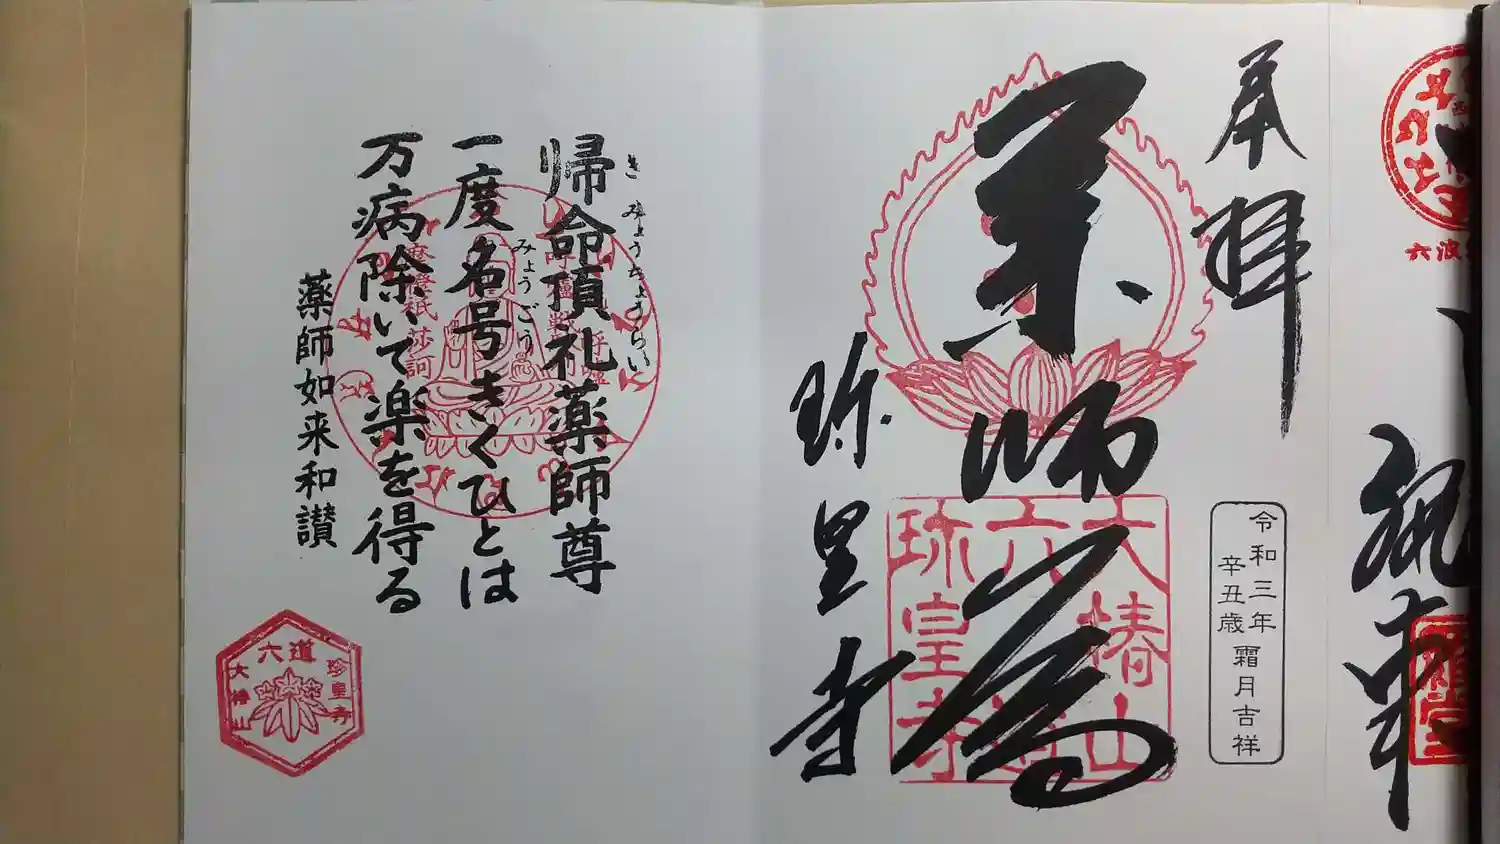 奉拝
薬師尊
珍皇寺
大椿山
六道
珍皇寺
令和三年
辛丑歳
霜月吉祥
六波
帰命頂礼薬師尊
きみょうちょうらい
一度名号きくひとは
みょうごう
万病除いて楽を得る
薬師如来和讃
六道
大椿山
珍皇寺